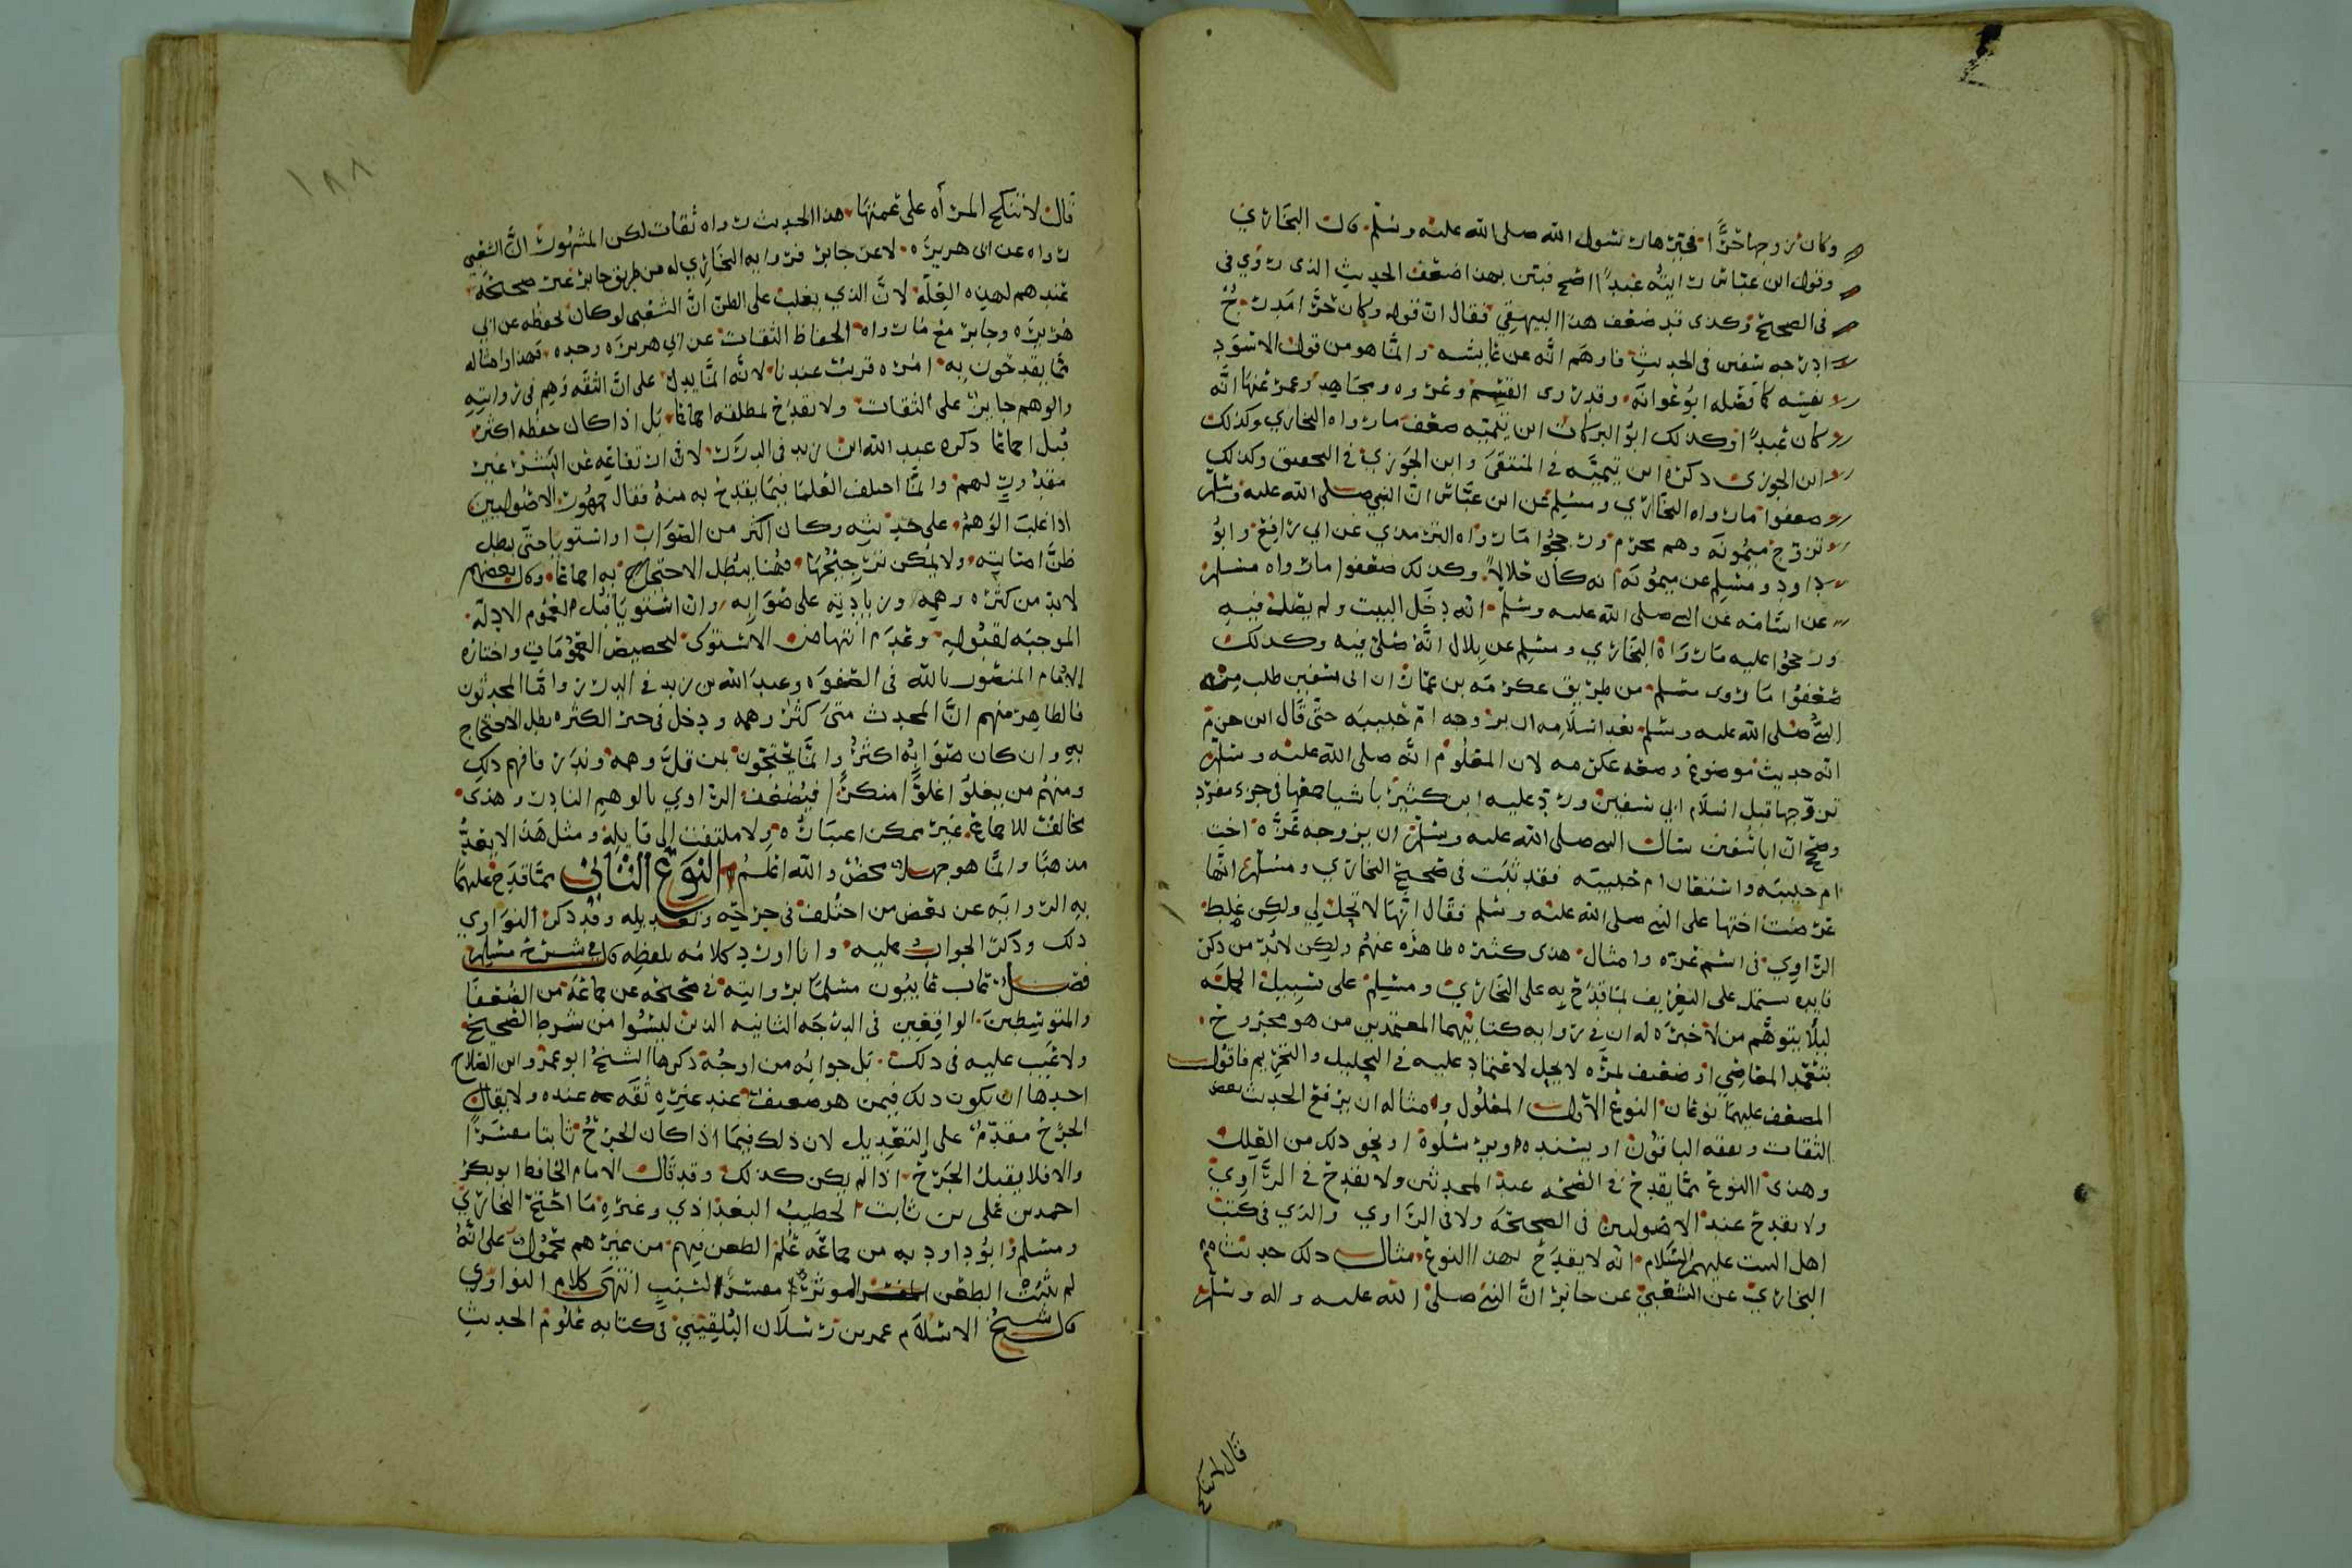 وكان زوجها حرًّا فخيرها رسول الله صلى الله عليه وسلم قال البخاري
وقول ابن عباس رايته عبدًا اصح فبين بهذا ضعف الحديث الذي روي في
في الصحيح وكذى قد ضعف هذا البيهقي فقال ان قوله وكان حرًّا مدرج
ادرجه في الحديث فاوهم انه عن عايشه وانما هو من قول الاسود
نفسه كما فصله ابو عوانه وقد روى القسم وعروه ومجاهد وعمره عنها انه
كان عبدًا وكذلك ابو البركات ابن تيميه ضعف ما رواه البخاري وكذلك
ابن الجوزي ذكره ابن تيميه في المنتقى وابن الجوزي في التحقيق وكذلك
ضعفوا ما رواه البخاري ومسلم عن ابن عباس ان النبي صلى الله عليه وسلم
تزوج ميمونه وهو محرم ورجحوا ما رواه الترمذي عن ابي رافع وابو
داود ومسلم عن ميمونه انه كان حلالًا وكذلك ضعفوا ما رواه مسلم
عن اسامه عن النبي صلى الله عليه وسلم انه دخل البيت ولم يصل فيه
ورجحوا عليه ما رواه البخاري ومسلم عن بلال انه صلى فيه وكذلك
ضعفوا ما روى مسلم من طريق عكرمه بن عمار ان ابا سفين طلب من
النبي صلى الله عليه وسلم بعد اسلامه ان يزوجه ام حبيبه حتى قال ابن حزم
انه حديث موضوع وضعه عكرمه لان المعلوم انه صلى الله عليه وسلم
تزوجها قبل اسلام ابي سفين ورد عليه ابن كثير باشيا جمعها في جزء مفرد
وصح ان ابا سفين سال النبي صلى الله عليه وسلم ان يزوجه عزه اخت
ام حبيبه واستعان ام حبيبه فقد ثبت في صحيح البخاري ومسلم انها
عرضت اختها على النبي صلى الله عليه وسلم فقال انها لا تحل لي ولكن غلط
الراوي في اسم عزه وامثال هذى كثيره ظاهره عنهم ولكن لابد من ذكر
فايده تشتمل على التعريف بما قدح به على البخاري ومسلم على سبيل الجمله
ليلا يتوهم من لا خبره له ان في روايه كتابيهما المعتمدين من هو مجروح
بتعمد المعاصي او ضعيف بمره لا يحل لاعتماد عليه في التحليل والتحريم فاقول
المضعف عليهما نوعان النوع الاول المعلول ومثاله ان يرفع الحديث بعض
الثقات ويقفه الباقون او يسنده ويرسلوه او نحو ذلك من العلل
وهذى النوع مما يقدح في الصحه عند المحدثين ولا يقدح في الراوي
ولا يقدح عند الاصوليين في الصحه ولا في الراوي والذي في كتب
اهل البيت عليهم السلام انه لا يقدح بهذا النوع مثال ذلك حديث
البخاري عن الشعبي عن جابر ان النبي صلى الله عليه واله وسلم
قال لا تنكح
١٨٨
قال لا تنكح المرأه على عمتها هذا الحديث رواه ثقات لكن المشهور ان الشعبي
رواه عن ابي هريره لا عن جابر فروايه البخاري له من طريق جابر غير صحيحه
عندهم لهذه العله لان الذي يغلب على الظن ان الشعبي لو كان يحفظه عن ابي
هريره وجابر مع ما رواه الحفاظ الثقات عن ابي هريره وحده فهذا وامثاله
مما يقدحون به امره قريب عندنا لانه انما يدل على ان الثقه وهم في روايته
والوهم جايز على الثقات ولا يقدح بمطلقه اجماعًا بل اذا كان حفظه اكثر
قبل اجماعًا ذكره عبد الله ابن زيد في الدرر لان ارتفاعه عن البشر غير
مقدور لهم وانما اختلف العلما فيما يقدح به منه فقال جمهور الاصوليين
اذا غلب الوهم على حديثه وكان اكثر من الصواب او استويا حتى بطل
ظن اصابته ولا يمكن ترجيحها فهنا يبطل الاحتجاج به اجماعًا وقال بعضهم
لابد من كثره وهمه وزيادته على صوابه وان استويا قبل لعموم الادله
الموجبه لقبوله وعدم انتهاض الاستوى لتخصيص العمومات واختاره
الامام المنصور بالله في الصفوه وعبد الله بن زيد في الدرر واما المحدثون
فالظاهر منهم ان المحدث متى كثر وهمه ودخل في حيز الكثره بطل الاحتجاج
به وان كان صوابه اكثر وانما يحتجون بمن قل وهمه وندر فافهم ذلك
ومنهم من يغلو اغلوًّا منكرًا فيضعف الراوي بالوهم النادر وهذى
مخالف للاجماع غير ممكن اعتباره ولا ملتفت الى قايله ومثل هذا لا يعد
مذهبًا وانما هو جهل محض والله اعلم النوع الثاني مما قدح عليهما
به الروايه عن بعض من اختلف في جرحه وتعديله وقد ذكر النواوي
ذلك وذكر الجواب عليه وانا اورد كلامه بلفظه قال في شرح مسلم
فصل عاب عايبون مسلمًا بروايته في صحيحه عن جماعة من الضعفا
والمتوسطين الواقعين في الدرجه الثانيه الذين ليسوا من شرط الصحيح
ولا عيب عليه في ذلك بل جوابه من اوجه ذكرها الشيخ ابو عمرو ابن الصلاح
احدها ان يكون ذلك فيمن هو ضعيف عند غيره ثقه عنده ولا يقال
الجرح مقدم على التعديل لان ذلك فيما اذا كان الجرح ثابتا مفسرًا
والا فلا يقبل الجرح اذا لم يكن كذلك وقد قال الامام الحافظ ابو بكر
احمد بن علي بن ثابت الخطيب البغدادي وغيره ما احتج البخاري
ومسلم وابو داود به من جماعه علم الطعن فيهم من غيرهم محمول على انه
لم يثبت الطعن الموثر مفسر السبب انتهى كلام النواوي
قال شيخ الاسلام عمر بن رسلان البلقيني في كتابه علوم الحديث